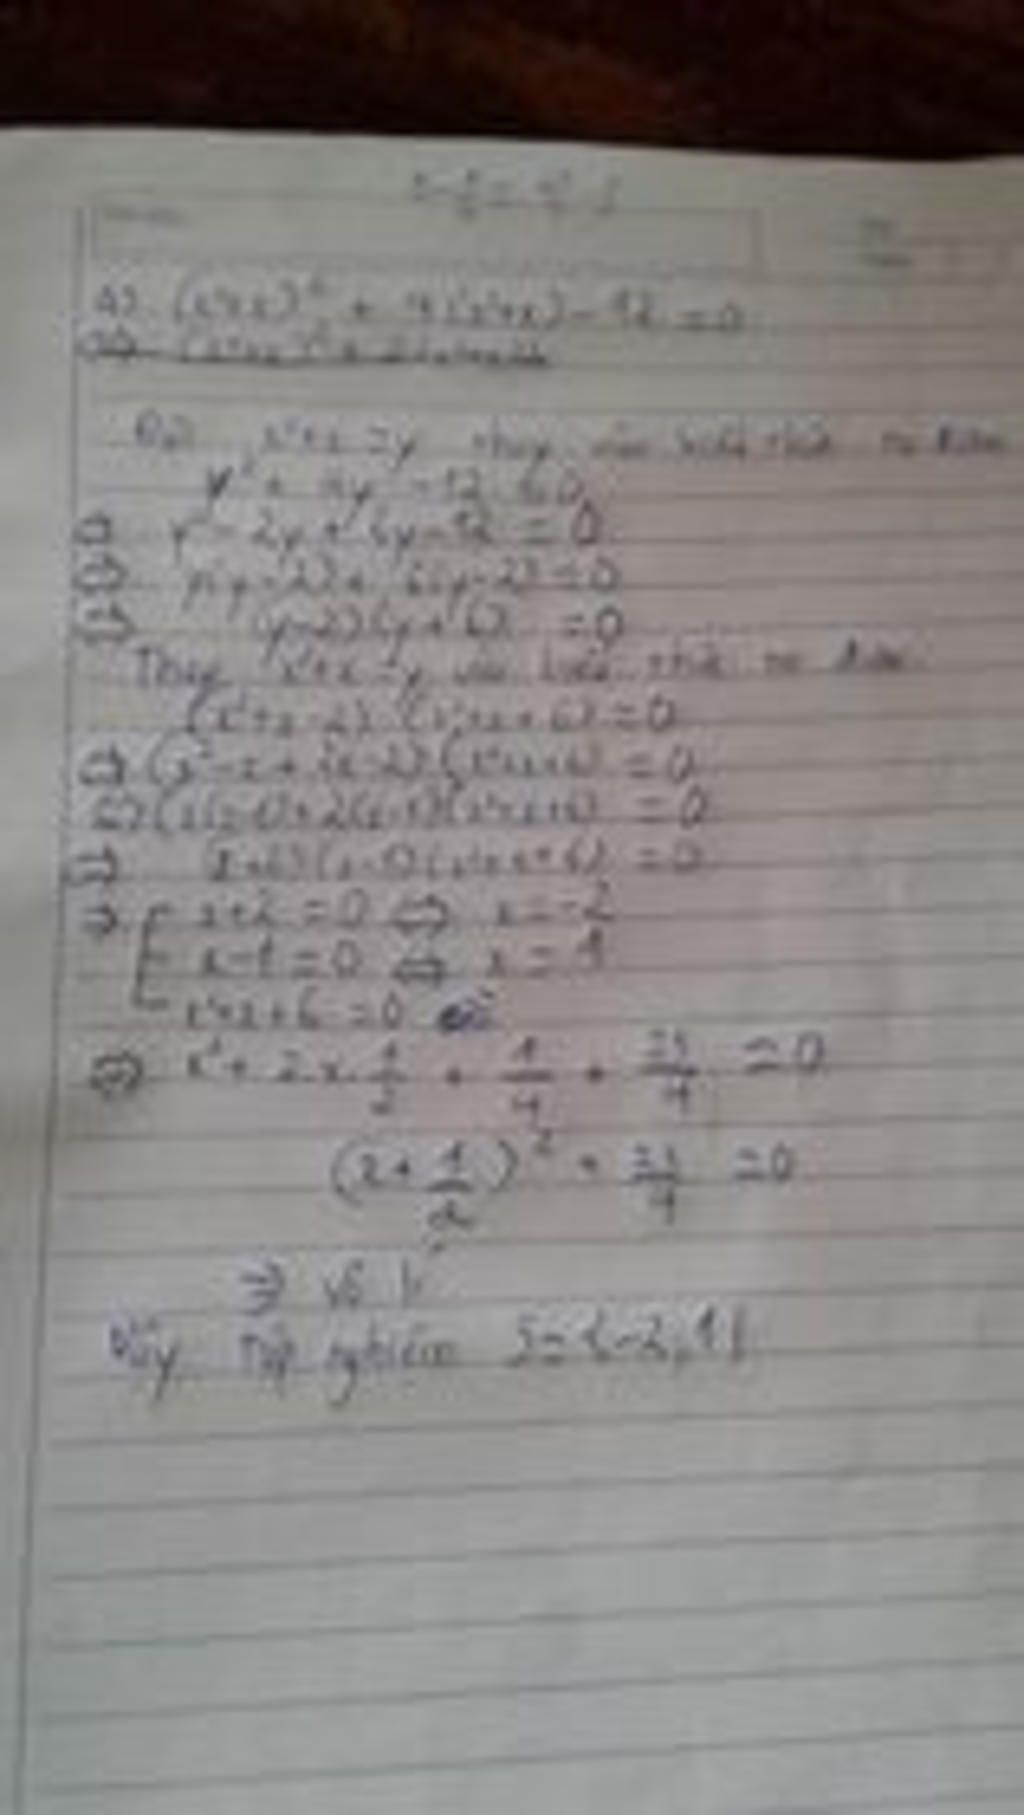 a) (x²+x)² + 4(x²+x) - 12 = 0
Đặt x²+x = y thay vào biểu thức ta được
y² + 4y - 12 = 0
⇔ y² - 2y + 6y - 12 = 0
⇔ y(y-2) + 6(y-2) = 0
⇔ (y-2)(y+6) = 0
Thay x²+x = y vào biểu thức ta được
(x²+x-2)(x²+x+6) = 0
⇔ (x²-x+2x-2)(x²+x+6) = 0
⇔ (x(x-1)+2(x-1))(x²+x+6) = 0
⇔ (x+2)(x-1)(x²+x+6) = 0
⇒ x+2 = 0 ⇔ x = -2
x-1 = 0 ⇔ x = 1
x²+x+6 = 0
⇔ x² + 2x 1/2 + 1/4 + 23/4 = 0
(x + 1/2)² + 23/4 = 0
⇒ vô lí
Vậy Tập nghiệm S={-2,1}